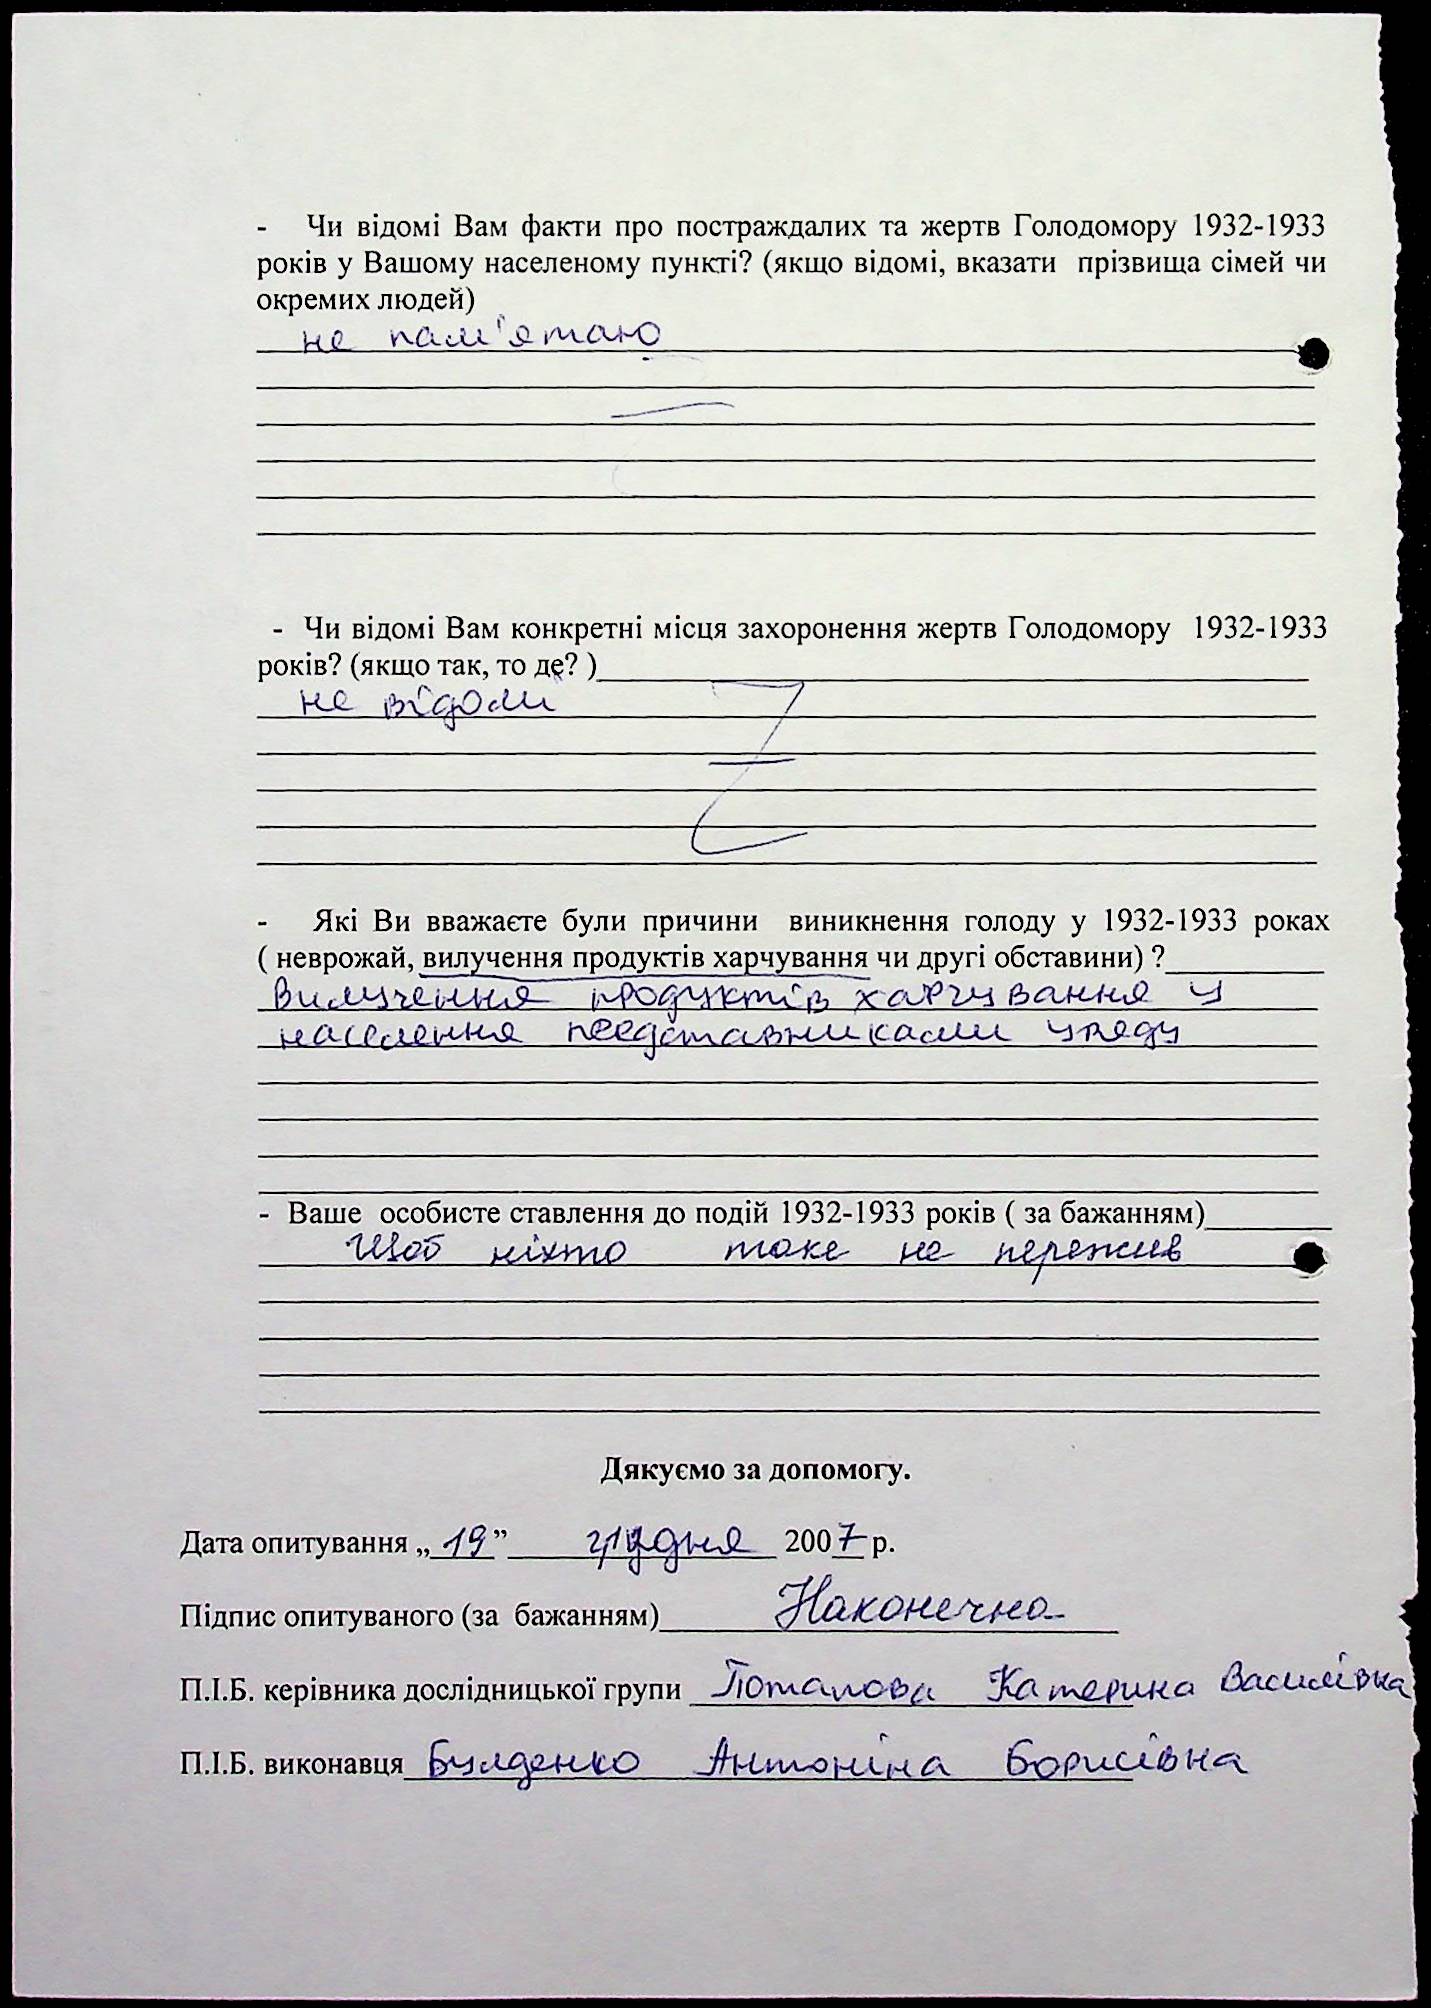 - Чи відомі Вам факти про постраждалих та жертв Голодомору 1932-1933
років у Вашому населеному пункті? (якщо відомі, вказати прізвища сімей чи
окремих людей)
не пам'ятаю
- Чи відомі Вам конкретні місця захоронення жертв Голодомору 1932-1933
років? (якщо так, то де? )
не відоми
- Які Ви вважаєте були причини виникнення голоду у 1932-1933 роках
( неврожай, вилучення продуктів харчування чи другі обставини) ?
Вилучення продуктів харчування у
населення представниками уряду
- Ваше особисте ставлення до подій 1932-1933 років ( за бажанням)
Щоб ніхто таке не пережив
Дякуємо за допомогу.
Дата опитування „ 19 ” грудня 2007 р.
Підпис опитуваного (за бажанням) Наконечна
П.І.Б. керівника дослідницької групи Потапова Катерина Василівна
П.І.Б. виконавця Булденко Антоніна Борисівна